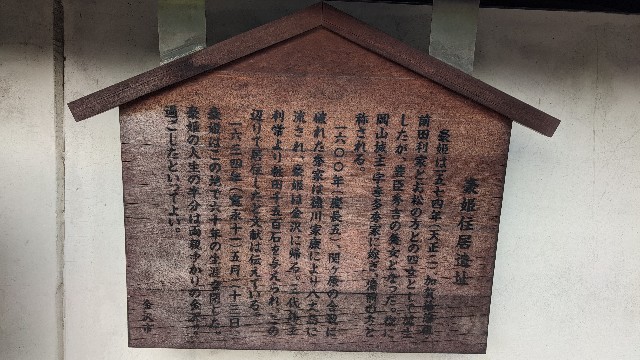 豪姫住居遺址
豪姫は一五七四年(天正二)加賀藩祖
前田利家とお松の方との四女として誕生
したが、豊臣秀吉の養女となった。後に
岡山城主宇喜多秀家に嫁ぎ、備前御方と
称される。
一六〇〇年(慶長五)、関ヶ原の合戦に
破れた秀家は徳川家康により八丈島に
流され、豪姫は金沢に帰る。三代藩主
利常より粧田千五百石を与えられ、この
辺りで居住したと文献は伝えている。
一六三四年(寛永十一)五月二十三日
豪姫はこの地で六十年の生涯を閉じた。
豪姫の人生の半分は両親ゆかりの金沢で
過ごしたといってよい。
金沢市